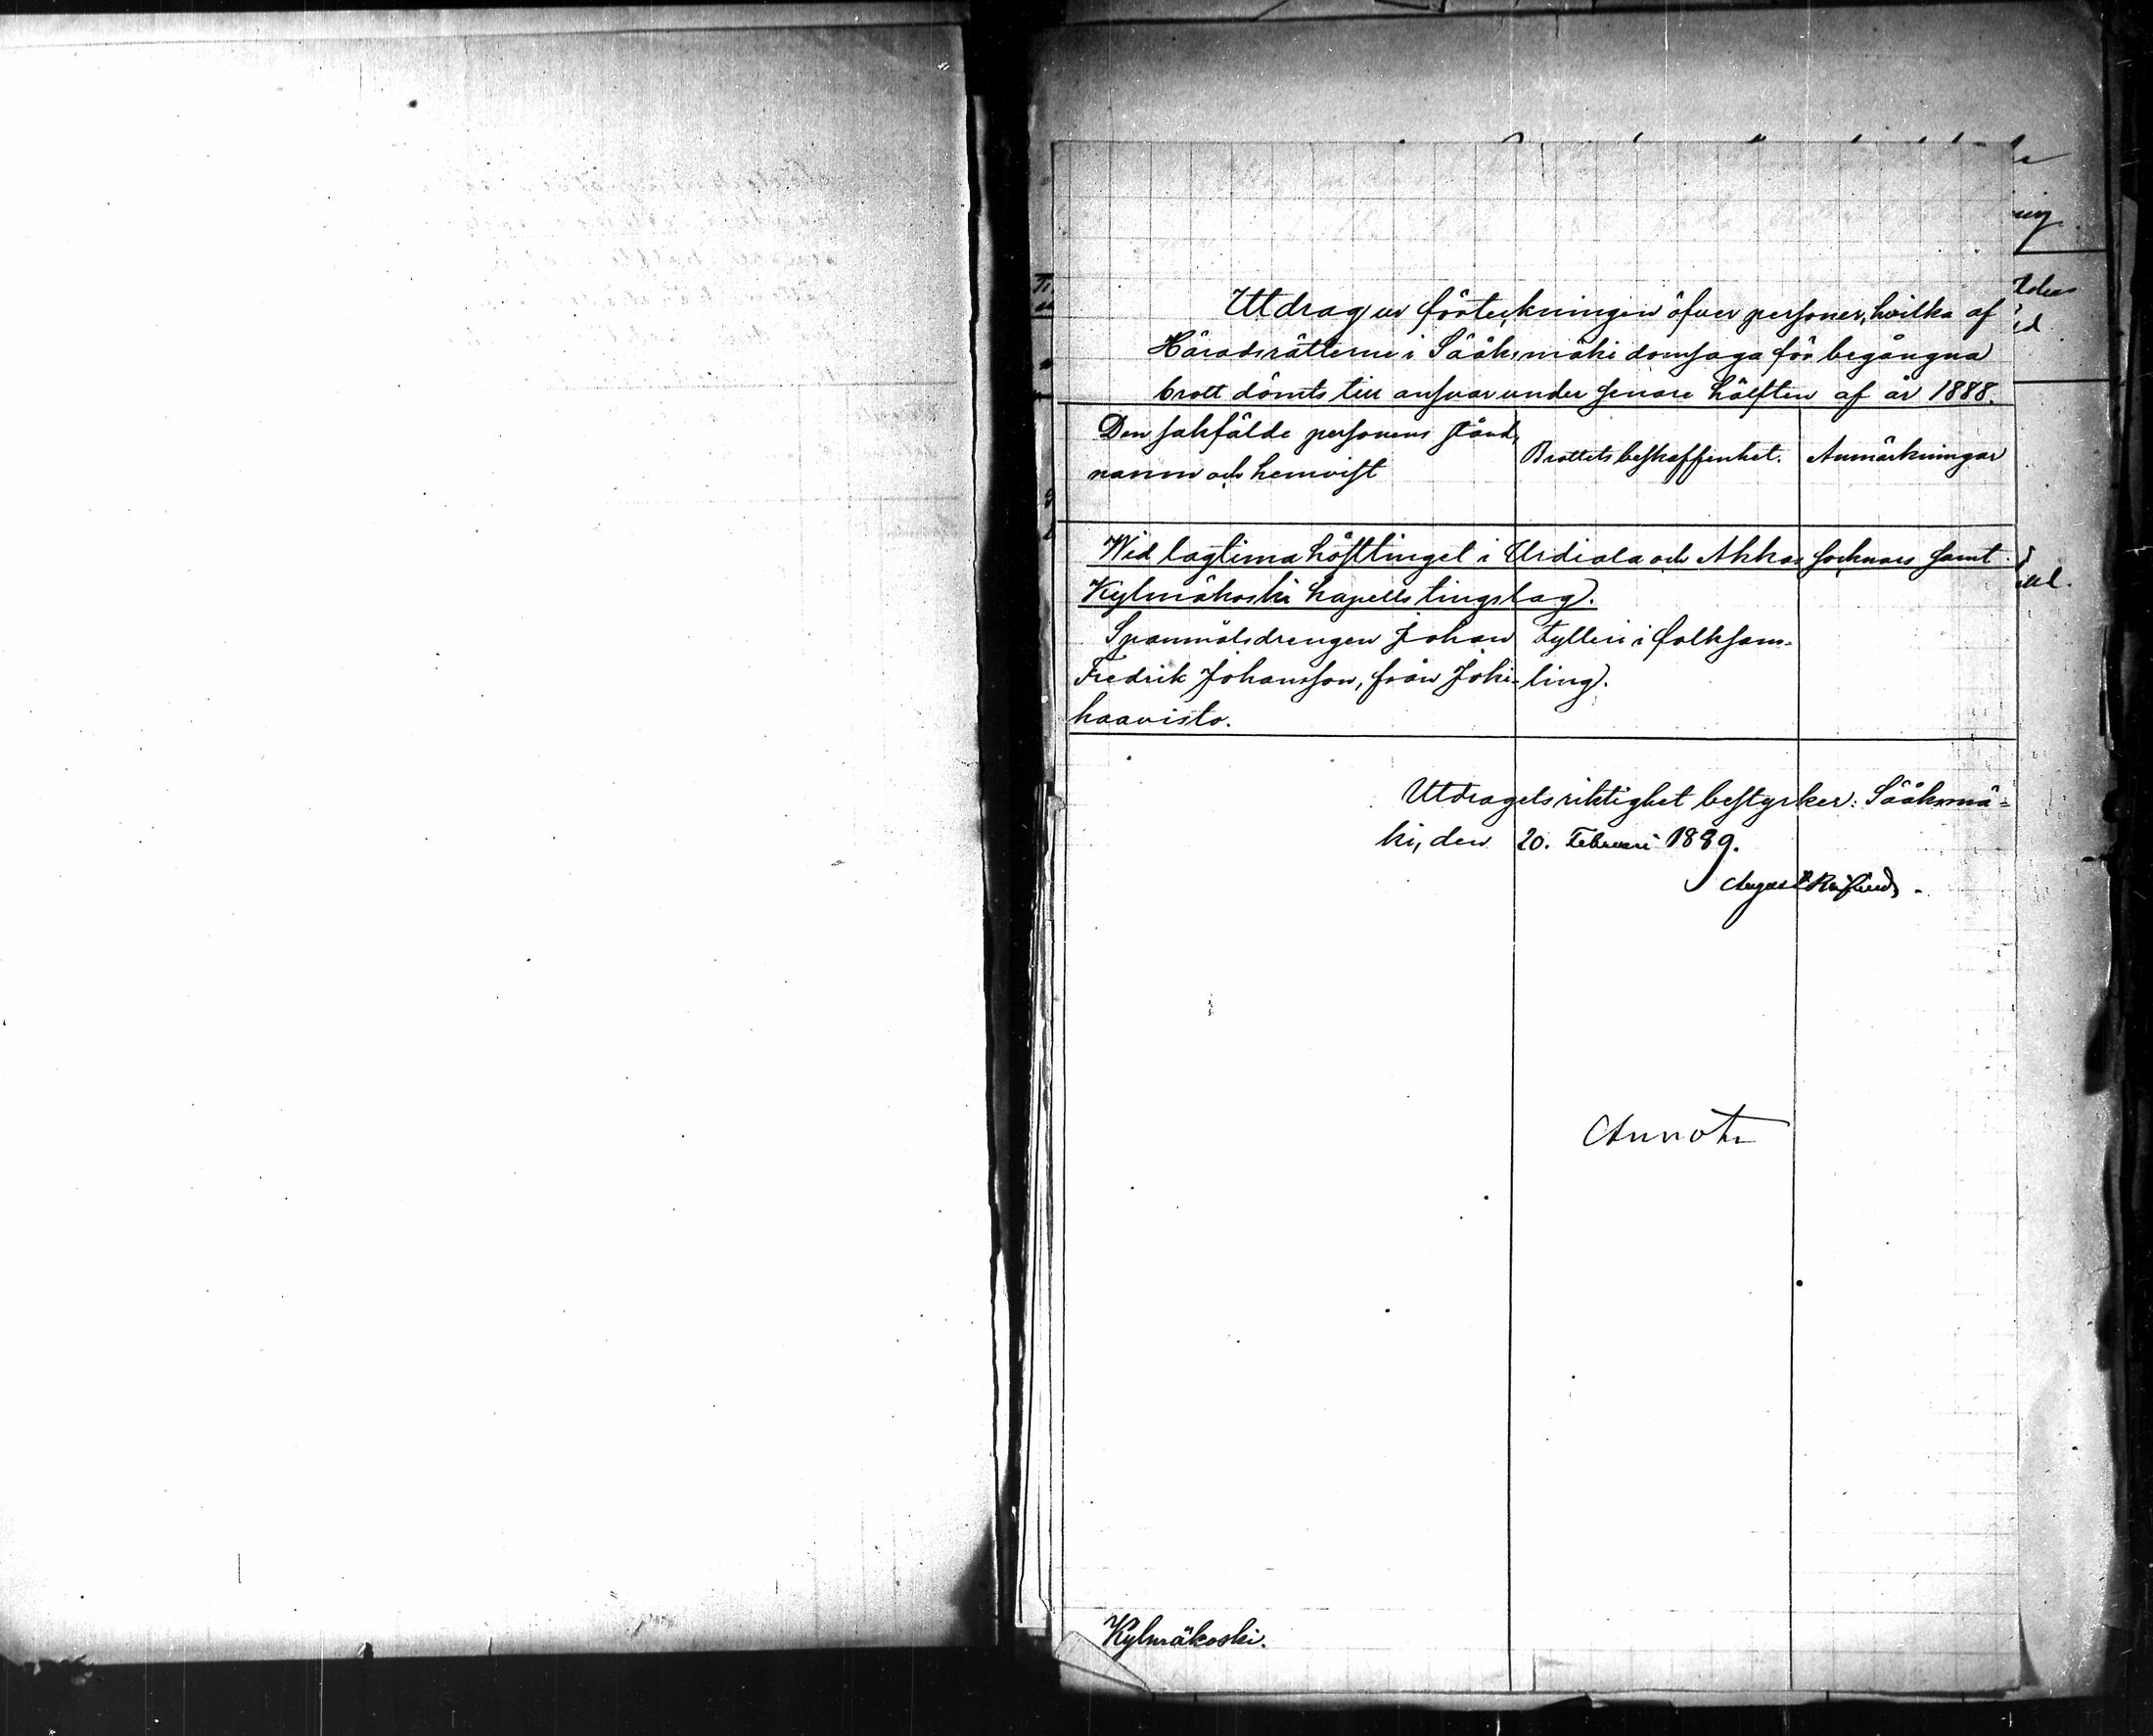 Utdrag ur förteckningen öfver personer, hvilka af
Häradsrätterne i Sääksmäki domsaga för begångna
brott dömts till ansvar under senare hälften af år 1888.
Den sakfälde personens stånd,
namn och hemvist
Brottets beskaffenhet.
Anmärkningar
Wid lagtima hösttinget i Urdiala och Akkas socknars samt
Kylmäkoski kapells tingslag.
Spanmålsdrengen Johan
Fredrik Johansson, från Joki-
haavisto.
Fylleri i folksam-
ling.
Utdragets riktighet bestyrker: Sääksmä-
ki, den 20. Februari 1889.
August
Annot
Kylmäkoski.